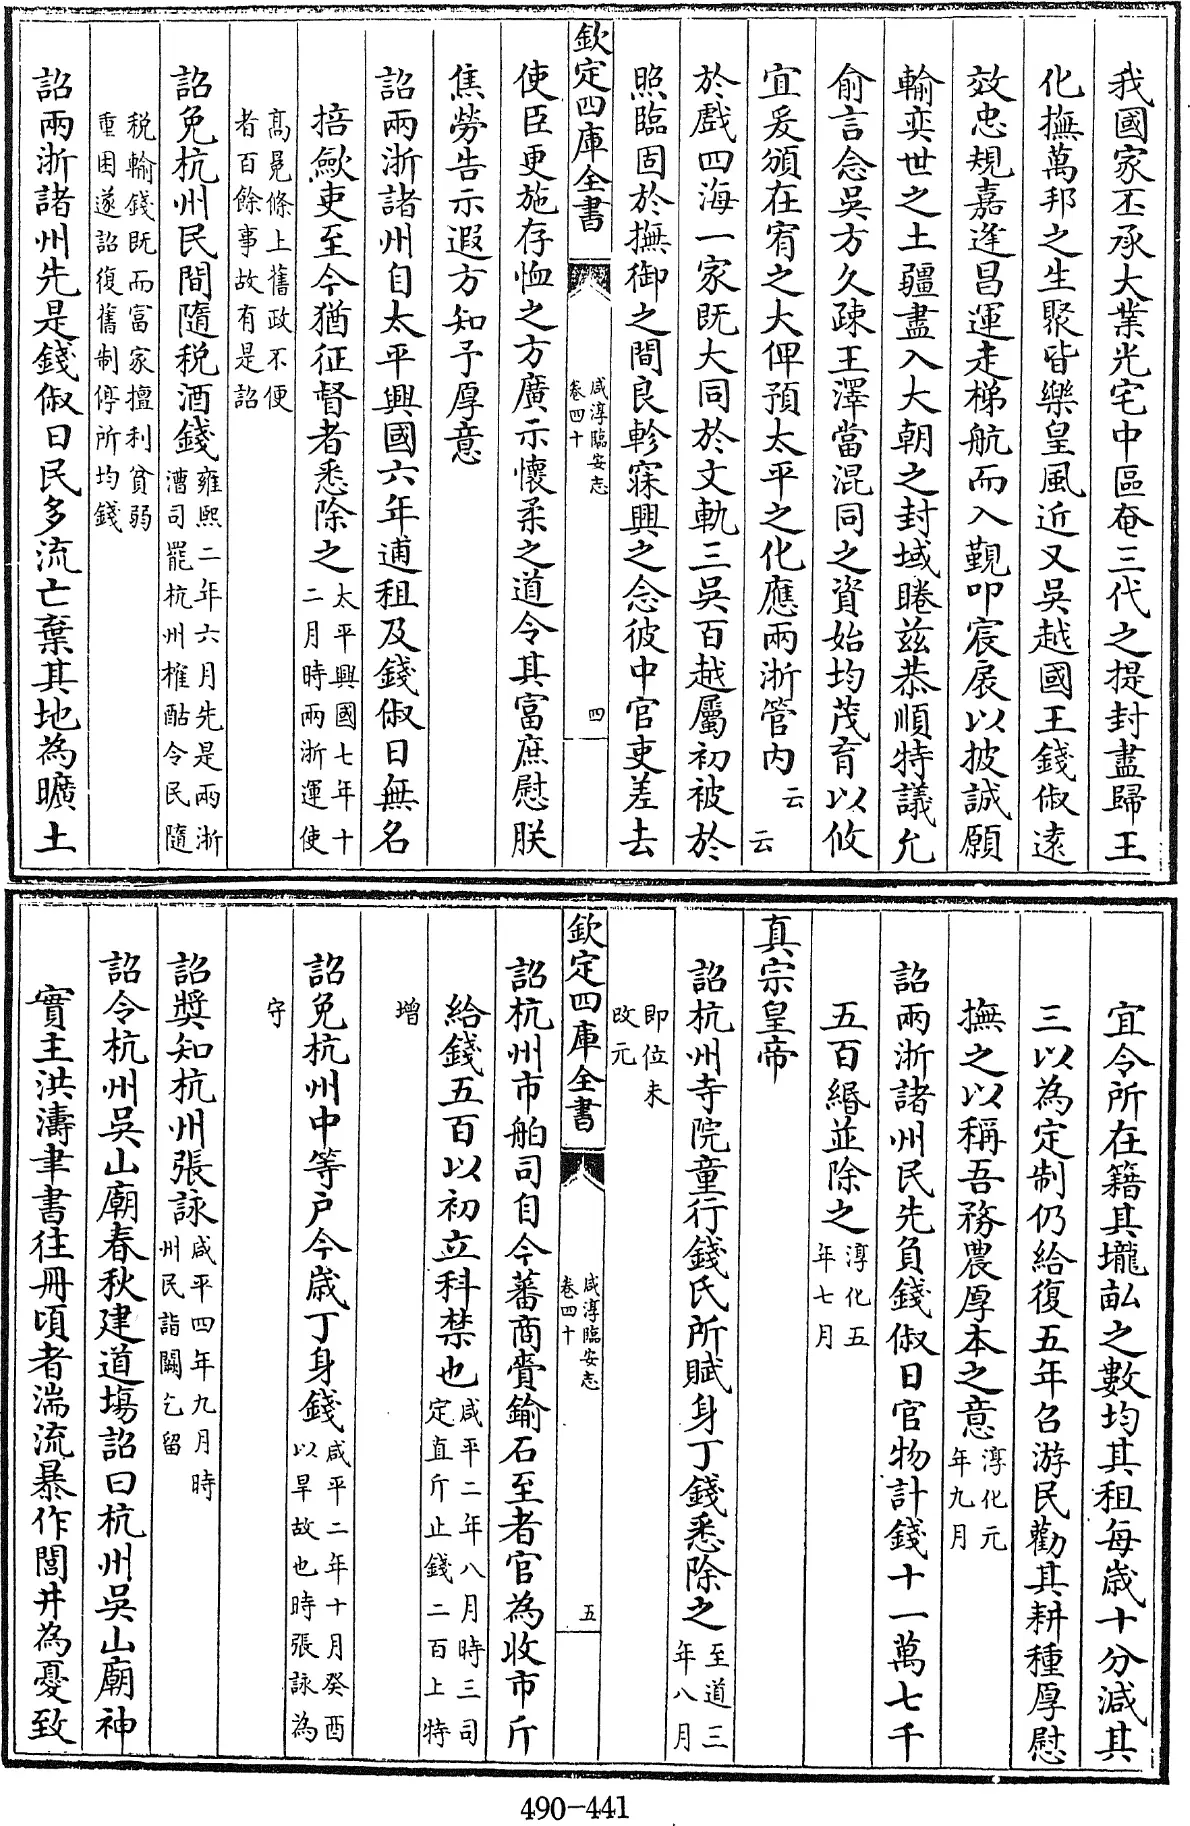 我國家丕承大業光宅中區奄三代之提封盡歸王
化撫萬邦之生聚皆樂皇風近又吳越國王錢俶遠
效忠規嘉逢昌運走梯航而入覲叩宸扆以披誠願
輸奕世之土疆盡入大朝之封域睠茲恭順特議允
俞言念吳方久疎王澤當混同之資始均茂育以攸
宜爰頒在宥之大俾預太平之化應兩浙管内云云
於戲四海一家既大同於文軌三吳百越屬初被於
照臨固於撫御之間良軫寐興之念彼中官吏差去
欽定四庫全書
咸淳臨安志
卷四十
四
使臣更施存恤之方廣示懷柔之道令其富庶慰朕
焦勞告示遐方知予厚意
詔兩浙諸州自太平興國六年逋租及錢俶日無名
掊歛吏至今猶征督者悉除之太平興國七年十
二月時兩浙運使
髙冕條上舊政不便
者百餘事故有是詔
詔免杭州民間隨税酒錢雍熙二年六月先是兩浙
漕司罷杭州榷酤令民隨
税輸錢既而富家擅利貧弱
重困遂詔復舊制停所均錢
詔兩浙諸州先是錢俶日民多流亡棄其地為曠土
宜令所在籍其壠畝之數均其租每歳十分減其
三以為定制仍給復五年召游民勸其耕種厚慰
撫之以稱吾務農厚本之意淳化元
年九月
詔兩浙諸州民先負錢俶日官物計錢十一萬七千
五百緡並除之淳化五
年七月
真宗皇帝
詔杭州寺院童行錢氏所賦身丁錢悉除之至道三
年八月
即位未
改元
欽定四庫全書
咸淳臨安志
卷四十
五
詔杭州市舶司自今蕃商賫鍮石至者官為收市斤
給錢五百以初立科禁也咸平二年八月時三司
定直斤止錢二百上特
增
詔免杭州中等户今歳丁身錢咸平二年十月癸酉
以旱故也時張詠為
守
詔奬知杭州張詠咸平四年九月時
州民詣闕乞留
詔令杭州吳山廟春秋建道塲詔曰杭州吳山廟神
實主洪濤聿書往冊頃者湍流暴作閭井為憂致
490-441